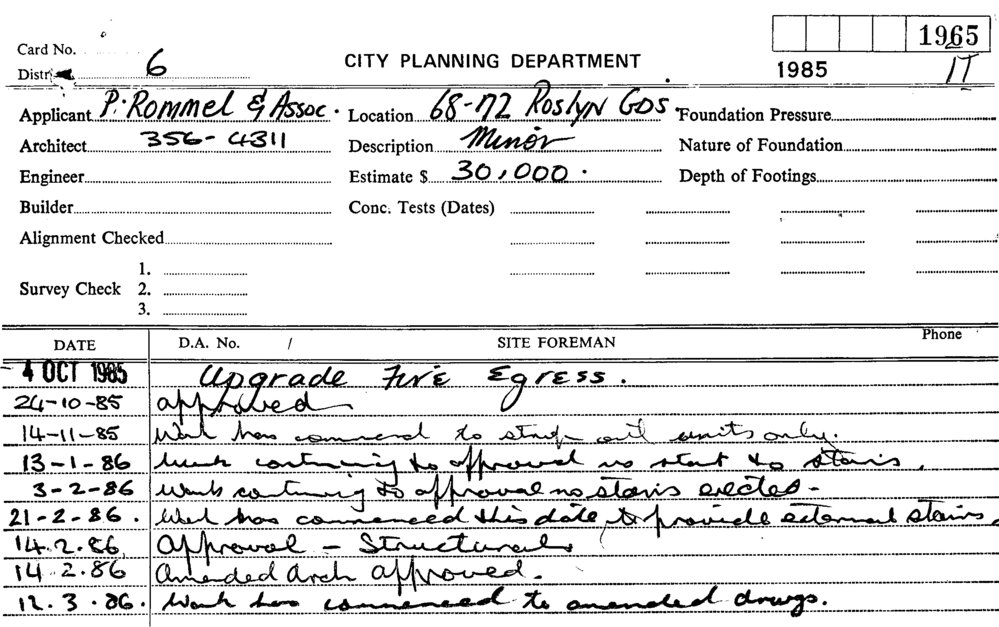 1965
Card No.
CITY PLANNING DEPARTMENT
1985
Distr 6
Applicant P. Rommel & Assoc. Location 68-72 Roslyn GDS. Foundation Pressure
Architect 356-4311 Description Minor Nature of Foundation
Engineer Estimate $ 30,000. Depth of Footings
Builder Conc. Tests (Dates)
Alignment Checked
1.
Survey Check 2.
3.
DATE D.A. No. / SITE FOREMAN Phone
4 OCT 1985 Upgrade Fire Egress.
24-10-85 approved
14-11-85 Work has commenced to strip out units only.
13-1-86 Work continuing to approval no start to stairs.
3-2-86 Work continuing to approval no stairs erected-
21-2-86. Work has commenced this date to provide external stairs.
14.2.86 Approval - Structural
14.2.86 Amended Arch approved.
12.3.86. Work has commenced to amended drwgs.